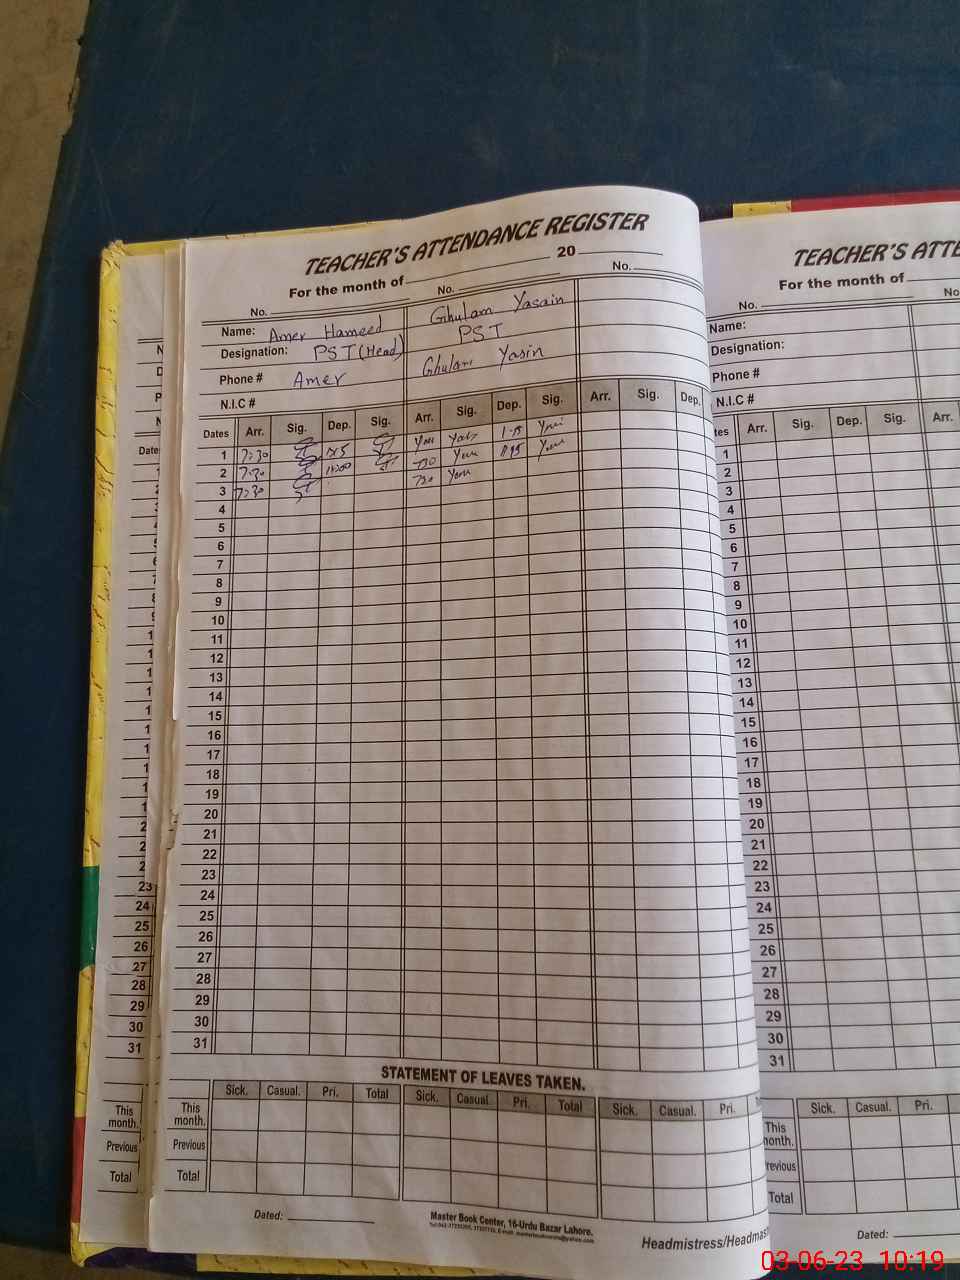 TEACHER'S ATTENDANCE REGISTER
For the month of 20
No. No. No.
Name: Amer Hameed Ghulam Yasain
Designation: PST (Head) PST
Phone # Amer Ghulam Yasin
N.I.C #
Dates Arr. Sig. Dep. Sig. Arr. Sig. Dep. Sig. Arr. Sig. Dep.
1 7:30
2 7:30
3 7:30
4
5
6
7
8
9
10
11
12
13
14
15
16
17
18
19
20
21
22
23
24
25
26
27
28
29
30
31
STATEMENT OF LEAVES TAKEN.
Sick. Casual. Pri. Total Sick. Casual. Pri. Total Sick. Casual. Pri.
This month.
Previous
Total
Dated:
Master Book Center, 16-Urdu Bazar Lahore.
Headmistress/Headmas
TEACHER'S ATTE
For the month of
No. No
Name:
Designation:
Phone #
N.I.C #
tes Arr. Sig. Dep. Sig. Arr.
1
2
3
4
5
6
7
8
9
10
11
12
13
14
15
16
17
18
19
20
21
22
23
24
25
26
27
28
29
30
31
Sick. Casual. Pri.
This
month.
revious
Total
Dated:
23
24
25
26
27
28
29
30
31
This
month.
Previous
Total
03-06-23 10:19